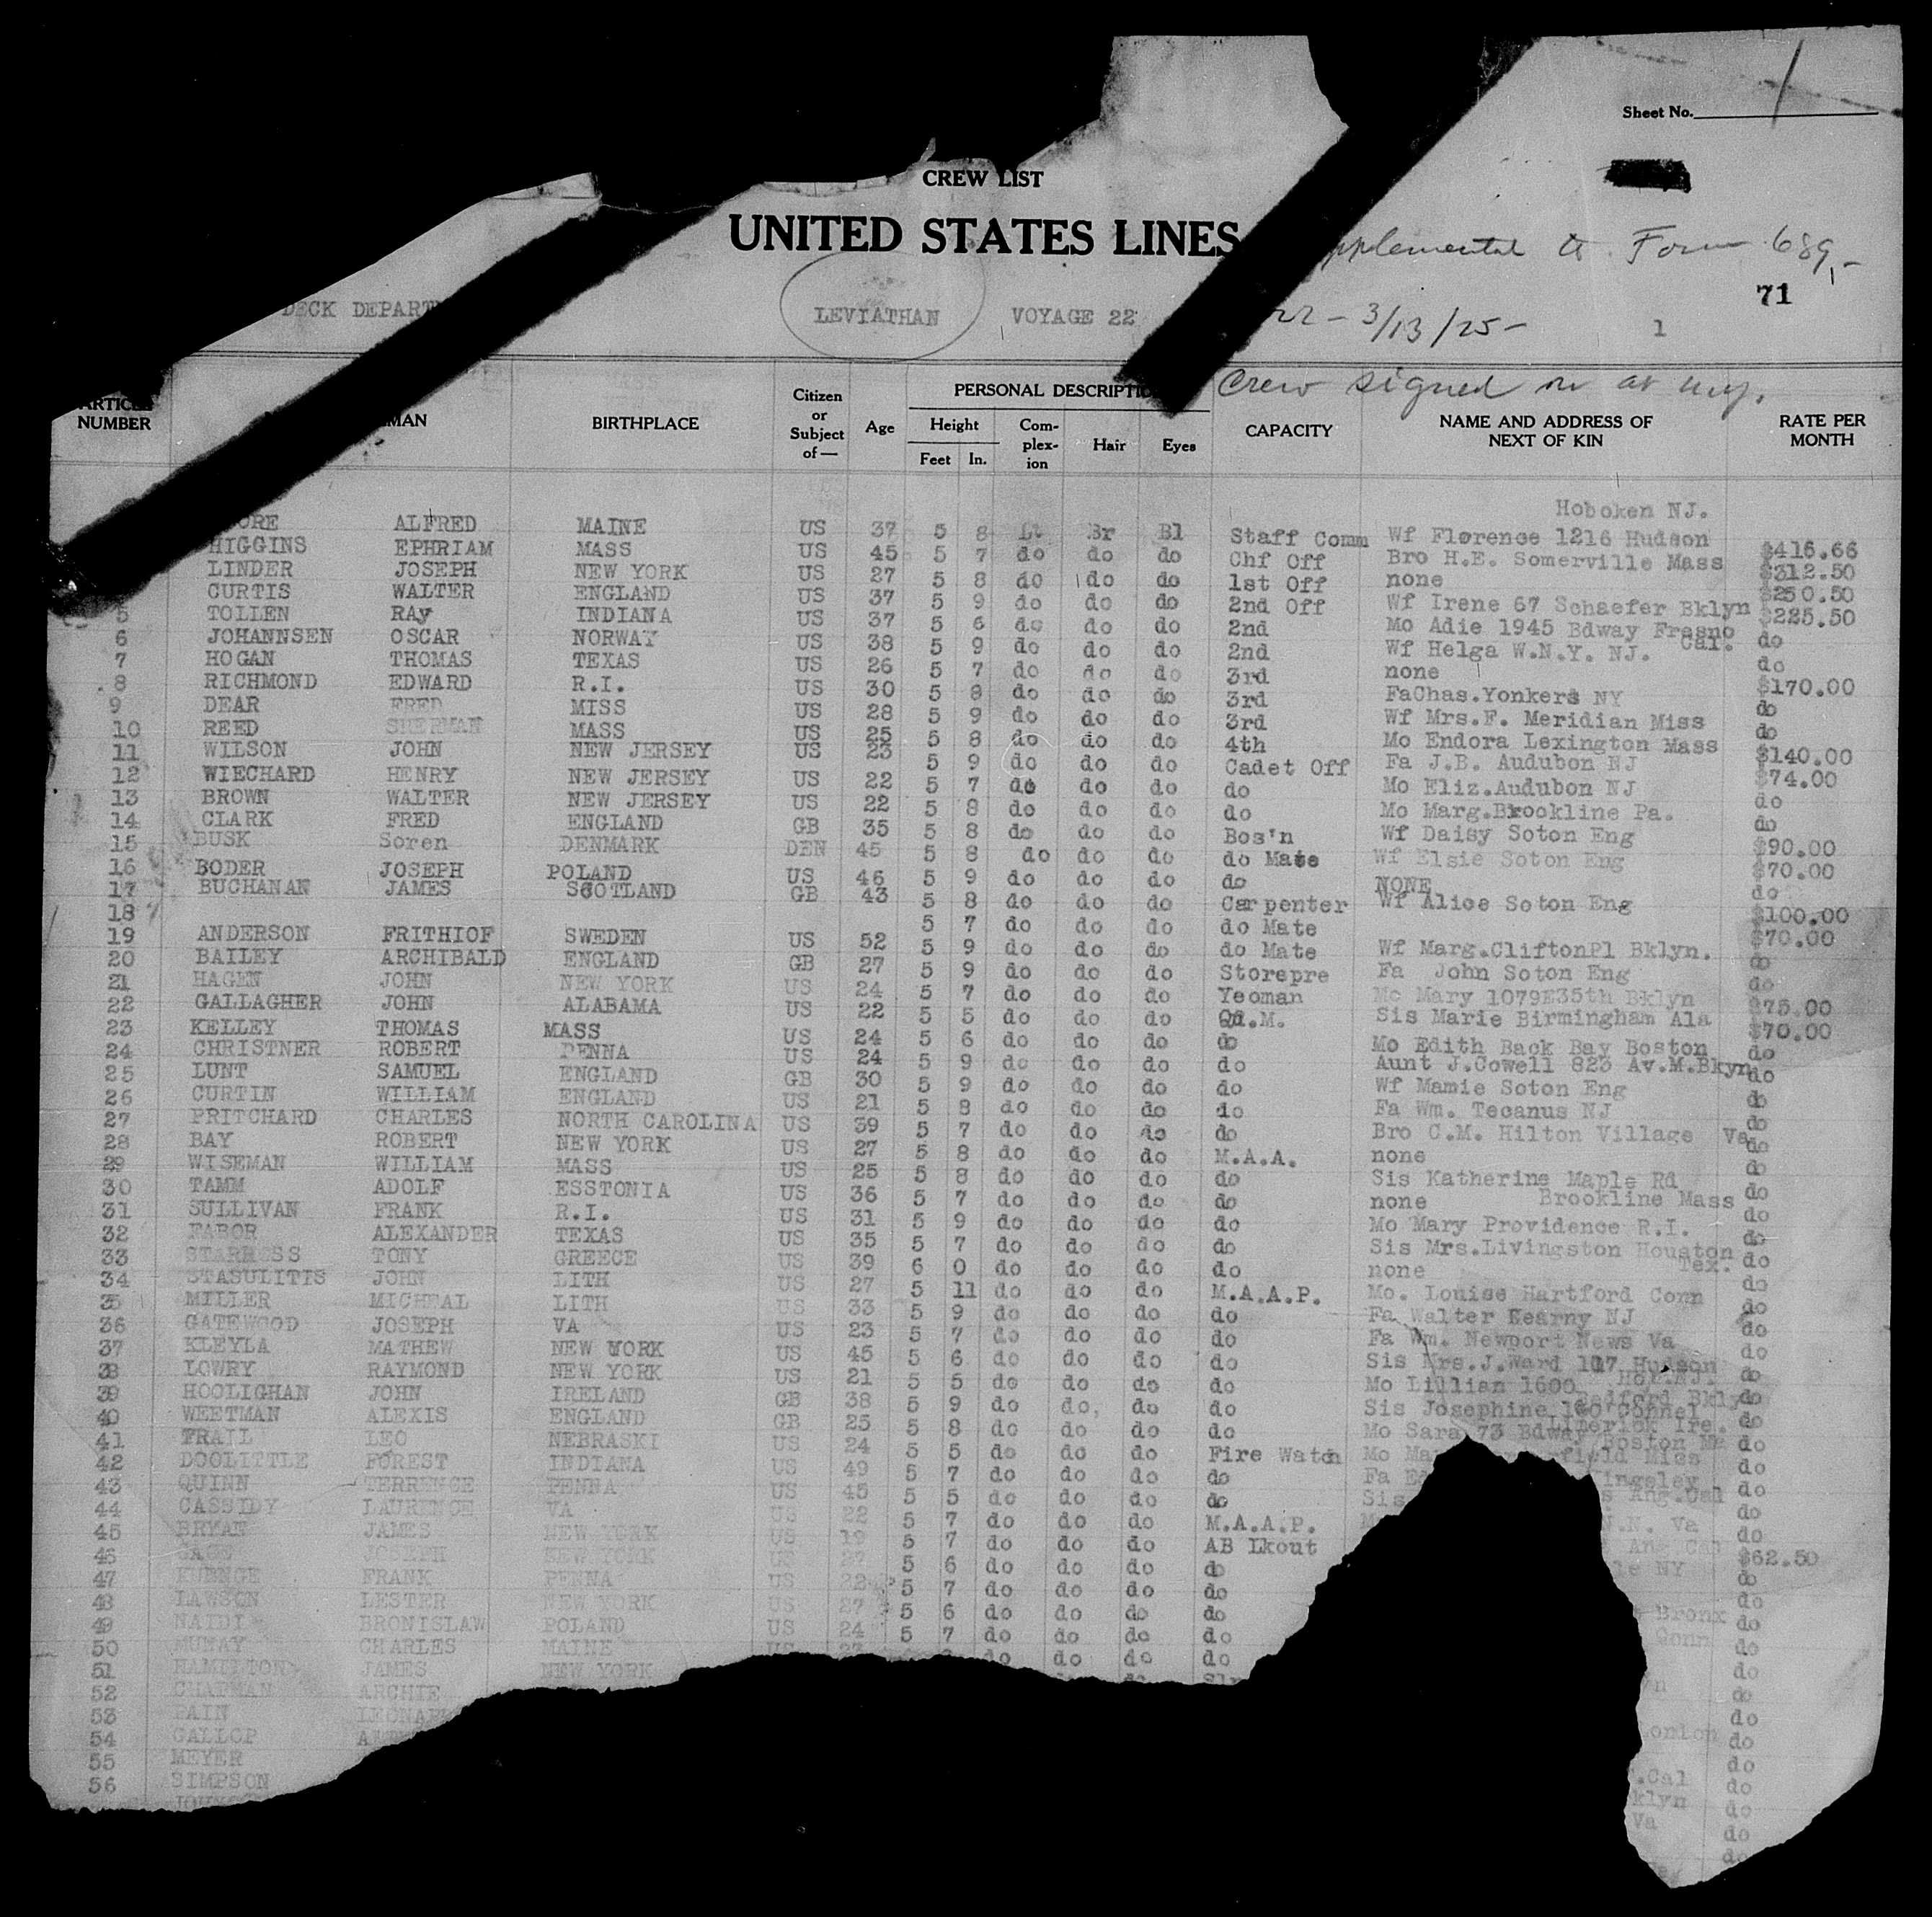 Sheet No. /
CREW LIST
UNITED STATES LINES
pplemental to Form 689,-
71
DECK DEPART LEVIATHAN VOYAGE 22 3/13/25- 1
Crew signed on at
ARTICLE NUMBER MAN BIRTHPLACE Citizen or Subject of— Age PERSONAL DESCRIPTIO Height Feet In. Com-plex-ion Hair Eyes CAPACITY NAME AND ADDRESS OF NEXT OF KIN RATE PER MONTH
Hoboken NJ.
ORE ALFRED MAINE US 37 5 8 Lt Br Bl Staff Comm Wf Florence 1216 Hudson $416.66
HIGGINS EPHRIAM MASS US 45 5 7 do do do Chf Off Bro H.E. Somerville Mass $312.50
LINDER JOSEPH NEW YORK US 27 5 8 do do do 1st Off none $250.50
CURTIS WALTER ENGLAND US 37 5 9 do do do 2nd Off Wf Irene 67 Schaefer Bklyn $225.50
5 TOLLEN RAy INDIANA US 37 5 6 do do do 2nd Mo Adie 1945 Bdway Fresno Cal. do
6 JOHANNSEN OSCAR NORWAY US 38 5 9 do do do 2nd Wf Helga W.N.Y. NJ. do
7 HOGAN THOMAS TEXAS US 26 5 7 do do do 3rd none $170.00
8 RICHMOND EDWARD R.I. US 30 5 8 do do do 3rd FaChas.Yonkers NY do
9 DEAR FRED MISS US 28 5 9 do do do 3rd Wf Mrs.F. Meridian Miss do
10 REED SHERMAN MASS US 25 5 8 do do do 4th Mo Endora Lexington Mass $140.00
11 WILSON JOHN NEW JERSEY US 23 5 9 do do do Cadet Off Fa J.B. Audubon NJ $74.00
12 WIECHARD HENRY NEW JERSEY US 22 5 7 do do do do Mo Eliz.Audubon NJ do
13 BROWN WALTER NEW JERSEY US 22 5 8 do do do do Mo Marg.Brookline Pa. do
14 CLARK FRED ENGLAND GB 35 5 8 do do do Bos'n Wf Daisy Soton Eng $90.00
15 BUSK Soren DENMARK DEN 45 5 8 do do do do Mate Wf Elsie Soton Eng $70.00
16 BODER JOSEPH POLAND US 46 5 9 do do do do NONE do
17 BUCHANAN JAMES SCOTLAND GB 43 5 8 do do do Carpenter Wf Alice Soton Eng $100.00
18 5 7 do do do do Mate $70.00
19 ANDERSON FRITHIOF SWEDEN US 52 5 9 do do do do Mate Wf Marg.CliftonPl Bklyn. do
20 BAILEY ARCHIBALD ENGLAND GB 27 5 9 do do do Storepre Fa John Soton Eng do
21 HAGEN JOHN NEW YORK US 24 5 7 do do do Yeoman Mo Mary 1079E35th Bklyn $75.00
22 GALLAGHER JOHN ALABAMA US 22 5 5 do do do Qd.M. Sis Marie Birmingham Ala $70.00
23 KELLEY THOMAS MASS US 24 5 6 do do do do Mo Edith Back Bay Boston do
24 CHRISTNER ROBERT PENNA US 24 5 9 do do do do Aunt J.Cowell 823 Av.M.Bkyn do
25 LUNT SAMUEL ENGLAND GB 30 5 9 do do do do Wf Mamie Soton Eng do
26 CURTIN WILLIAM ENGLAND US 21 5 8 do do do do Fa Wm. Tecanus NJ do
27 PRITCHARD CHARLES NORTH CAROLINA US 39 5 7 do do do do Bro C.M. Hilton Village Va do
28 BAY ROBERT NEW YORK US 27 5 8 do do do M.A.A. none do
29 WISEMAN WILLIAM MASS US 25 5 8 do do do do Sis Katherine Maple Rd Brookline Mass do
30 TAMM ADOLF ESSTONIA US 36 5 7 do do do do none do
31 SULLIVAN FRANK R.I. US 31 5 9 do do do do Mo Mary Providence R.I. do
32 FABOR ALEXANDER TEXAS US 35 5 7 do do do do Sis Mrs.Livingston Houston Tex. do
33 STARRESS TONY GREECE US 39 6 0 do do do do none do
34 STASULITIS JOHN LITH US 27 5 11 do do do M.A.A.P. Mo. Louise Hartford Conn do
35 MILLER MICHEAL LITH US 33 5 9 do do do do Fa Walter Kearny NJ do
36 GATEWOOD JOSEPH VA US 23 5 7 do do do do Fa Wm. Newport News Va do
37 KLEYLA MATHEW NEW YORK US 45 5 6 do do do do Sis Mrs.J.Ward 117 Hudson Hob.NJ. do
38 LOWRY RAYMOND NEW YORK US 21 5 5 do do do do Mo Lillian 1600 Bedford Bkly do
39 HOOLIGHAN JOHN IRELAND GB 38 5 9 do do do do Sis Josephine 140'Connel Limerick Ire. do
40 WEETMAN ALEXIS ENGLAND GB 25 5 8 do do do do Mo Sara 73 Bdway Boston Ma do
41 TRAIL LEO NEBRASKI US 24 5 5 do do do Fire Watch Mo Ma field Miss do
42 DOOLITTLE FOREST INDIANA US 49 5 7 do do do do Fa Ed ingsley s Ang.Cal do
43 QUINN TERRENCE PENNA US 45 5 5 do do do do Sis do
44 CASSIDY LAURENCE VA US 22 5 7 do do do M.A.A.P. N.N. Va do
45 BRYAN JAMES NEW YORK US 19 5 7 do do do AB Lkout Ang Cal $62.50
46 GAGE JOSEPH NEW YORK US 27 5 6 do do do do le NY do
47 FRANK PENNA US 22 5 7 do do do do do
48 LAWSON LESTER NEW YORK US 27 5 6 do do do do Bronx do
49 NAIDI BRONISLAW POLAND US 24 5 7 do do do do Conn do
50 MUNAY CHARLES MAINE US 23 do do do do do
51 HAMILTON JAMES NEW YORK n do
52 CHAPMAN ARCHIE do
53 PAIN LEONAR do
54 GALLOP do
55 MEYER .Cal do
56 SIMPSON klyn do
Va do
do